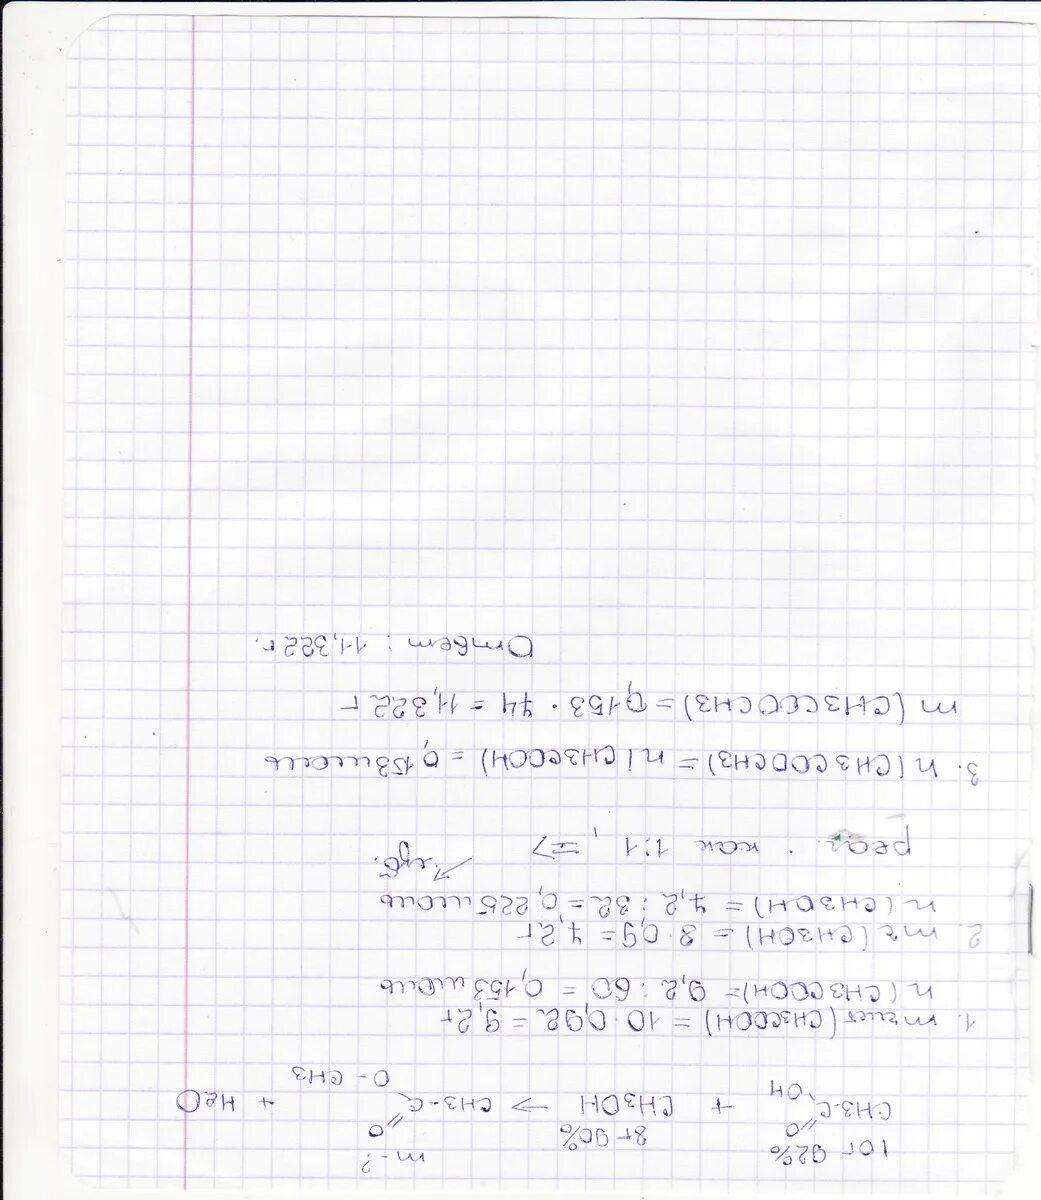 10г 92% 8г 90% m-?
CH3-C=O OH + CH3OH → CH3-C=O O-CH3 + H2O
1. mчист(CH3COOH) = 10 · 0,92 = 9,2г
n(CH3COOH) = 9,2 : 60 = 0,153 моль
2. mч(CH3OH) = 8 · 0,9 = 7,2г
n(CH3OH) = 7,2 : 32 = 0,225 моль
реаг. как 1:1, =>
3. n(CH3COOCH3) = n(CH3COOH) = 0,153 моль
m(CH3COOCH3) = 0,153 · 74 = 11,322 г
Ответ: 11,322 г.